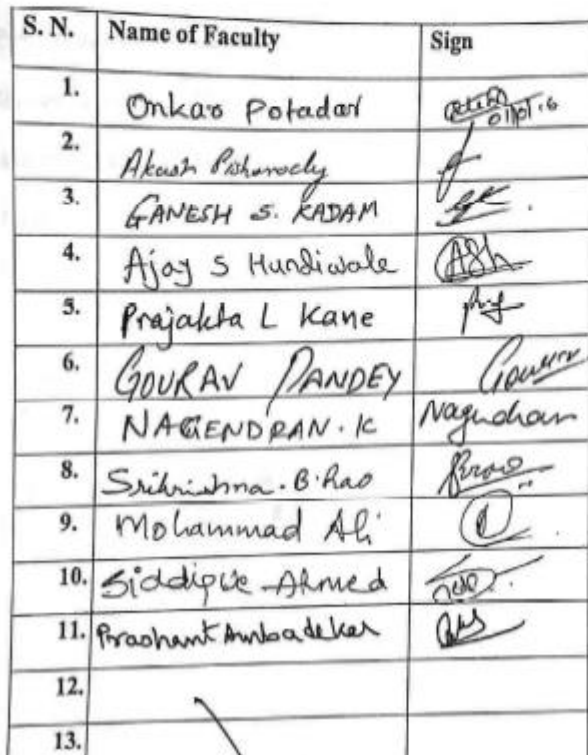 S. N. Name of Faculty Sign
1. Onkar Potadar
2. Akash Pisharody
3. GANESH S. KADAM
4. Ajay S Hundiwale
5. Prajakta L Kane
6. GOURAV PANDEY Gourav
7. NAGENDRAN. K Nagendran
8. Srikrishna. B. Rao
9. Mohammad Ali
10. Siddique Ahmed
11. Prashant Ambadekar
12.
13.